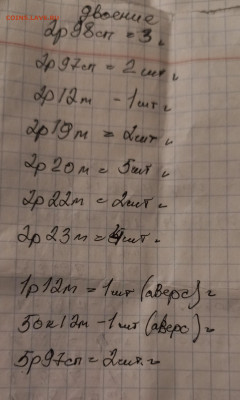 COINSS.RU
двоение
2р98сп = 3.
2р97сп = 2шт.
2р12м - 1шт.
2р19м = 2шт.
2р20м = 5шт.
2р22м = 2шт.
2р23м = 4шт.
1р12м = 1шт (аверс).
50к12м - 1шт (аверс).
5р97сп = 2шт.